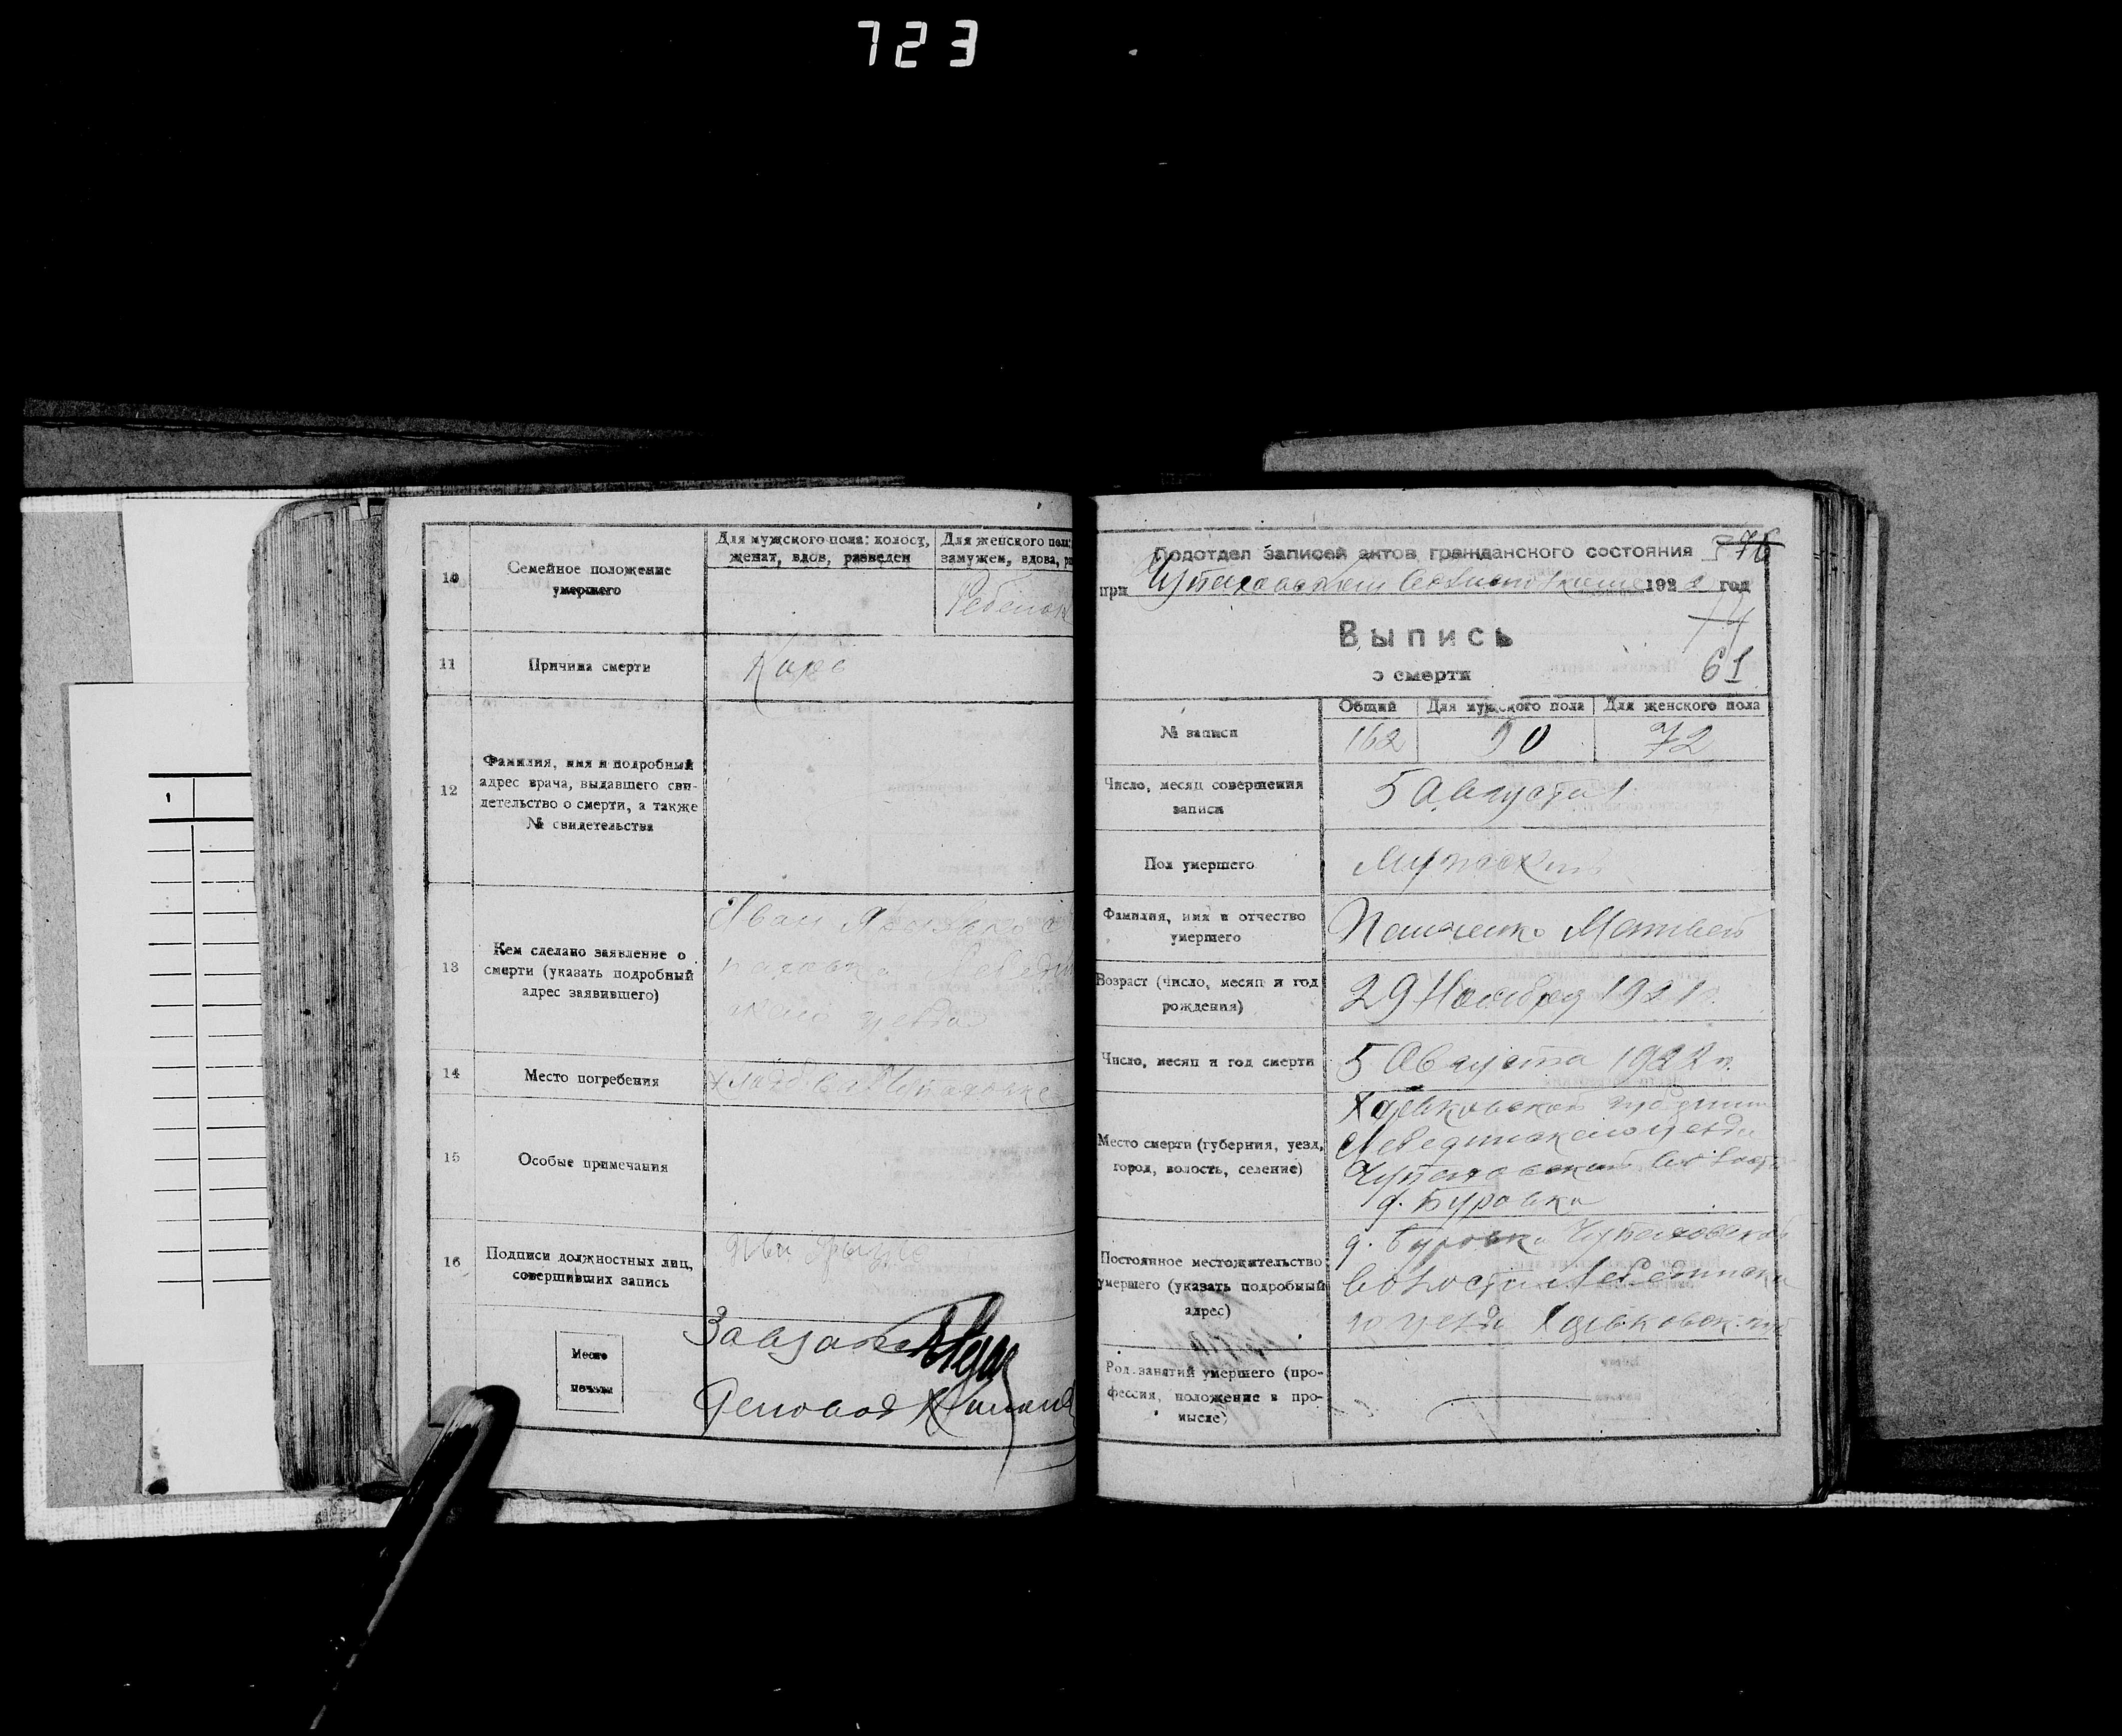 723
10
Семейное положение
умершего
Для мужского пола: холост,
женат, вдов, разведен
Для женского пола:
замужем, вдова, ра
Ребенок
11
Причина смерти
Корь
12
Фамилия, имя и подробный
адрес врача, выдавшего сви-
детельство о смерти, а также
№ свидетельства
13
Кем сделано заявление о
смерти (указать подробный
адрес заявившего)
Иван
уезда
14
Место погребения
15
Особые примечания
16
Подписи должностных лиц,
совершивших запись
Место
печати
Деловод
Подотдел записей актов гражданского состояния
76
при Чупаховском Волисполкоме 1922 год
Выпись
о смерти
61
№ записи
Общий
Для мужского пола
Для женского пола
162
90
72
Число, месяц совершения
записи
5 Августа
Пол умершего
Мужской
Фамилия, имя и отчество
умершего
Матвей
Возраст (число, месяц и год
рождения)
29 Ноября 1921 г.
Число, месяц и год смерти
5 Августа 1922 г.
Место смерти (губерния, уезд,
город, волость, селение)
Харьковской губернии
Лебединского уезда
Чупаховской волости
д. Буровка
Постоянное местожительство
умершего (указать подробный
адрес)
д. Буровка Чупаховской
волости Лебединско
го уезда Харьковск. губ
Род занятий умершего (про-
фессия, положение в про-
мысле)
1